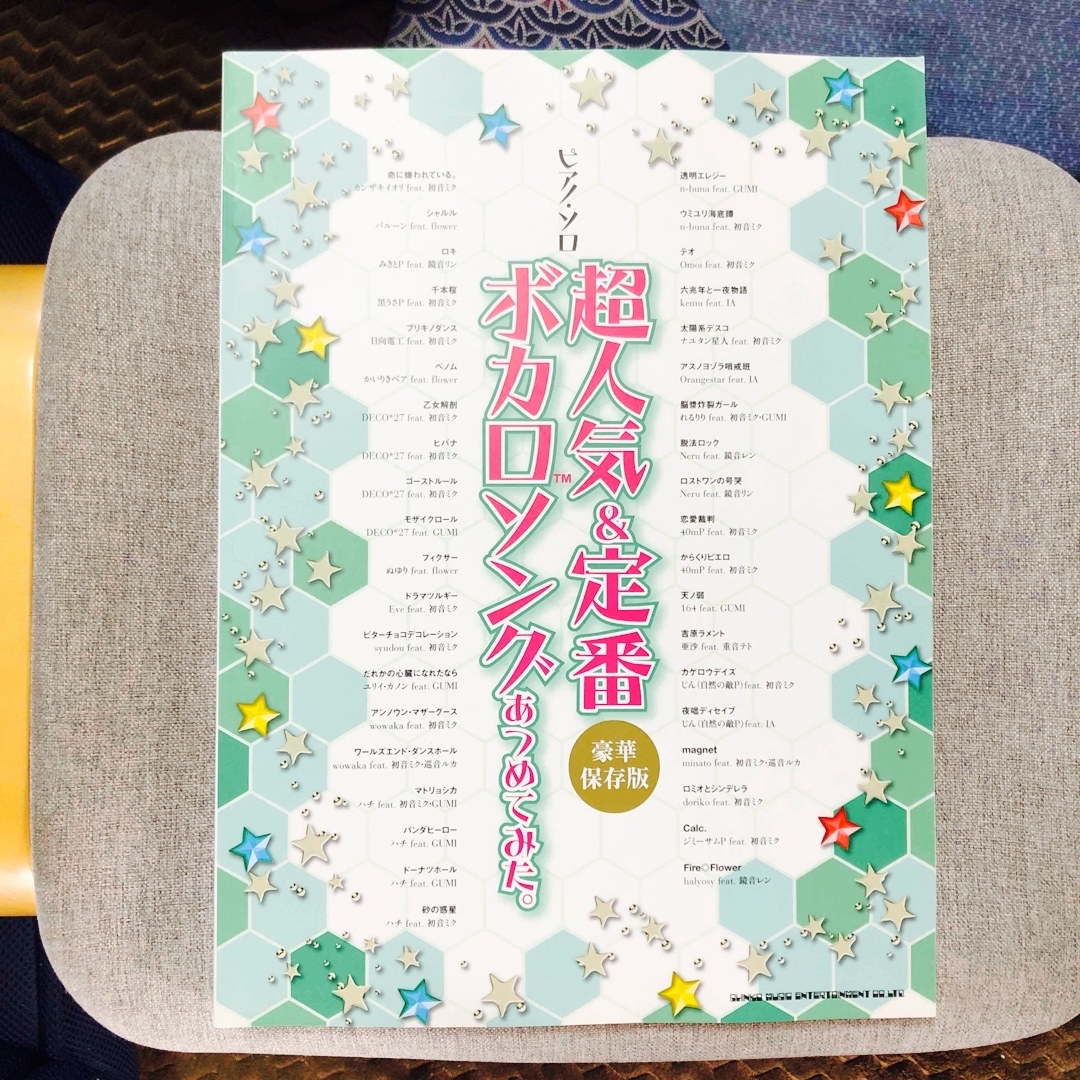 ピアノ・ソロ
超人気&定番
ボカロ™ソングあつめてみた。
豪華
保存版
命に嫌われている。
カンザキイオリ feat. 初音ミク
シャルル
バルーン feat. flower
ロキ
みきとP feat. 鏡音リン
千本桜
黒うさP feat. 初音ミク
ブリキノダンス
日向電工 feat. 初音ミク
ベノム
かいりきベア feat. flower
乙女解剖
DECO*27 feat. 初音ミク
ヒバナ
DECO*27 feat. 初音ミク
ゴーストルール
DECO*27 feat. 初音ミク
モザイクロール
DECO*27 feat. GUMI
フィクサー
ぬゆり feat. flower
ドラマツルギー
Eve feat. 初音ミク
ビターチョコデコレーション
syudou feat. 初音ミク
だれかの心臓になれたなら
ユリイ・カノン feat. GUMI
アンノウン・マザーグース
wowaka feat. 初音ミク
ワールズエンド・ダンスホール
wowaka feat. 初音ミク・巡音ルカ
マトリョシカ
ハチ feat. 初音ミク・GUMI
パンダヒーロー
ハチ feat. GUMI
ドーナツホール
ハチ feat. GUMI
砂の惑星
ハチ feat. 初音ミク
透明エレジー
n-buna feat. GUMI
ウミユリ海底譚
n-buna feat. 初音ミク
テオ
Omoi feat. 初音ミク
六兆年と一夜物語
kemu feat. IA
太陽系デスコ
ナユタン星人 feat. 初音ミク
アスノヨゾラ哨戒班
Orangestar feat. IA
脳漿炸裂ガール
れるりり feat. 初音ミク・GUMI
脱法ロック
Neru feat. 鏡音レン
ロストワンの号哭
Neru feat. 鏡音リン
恋愛裁判
40mP feat. 初音ミク
からくりピエロ
40mP feat. 初音ミク
天ノ弱
164 feat. GUMI
吉原ラメント
亜沙 feat. 重音テト
カゲロウデイズ
じん(自然の敵P)feat. 初音ミク
夜咄ディセイブ
じん(自然の敵P)feat. IA
magnet
minato feat. 初音ミク・巡音ルカ
ロミオとシンデレラ
doriko feat. 初音ミク
Calc.
ジミーサムP feat. 初音ミク
Fire◎Flower
halyosy feat. 鏡音レン
SHINKO MUSIC ENTERTAINMENT CO.,LTD.